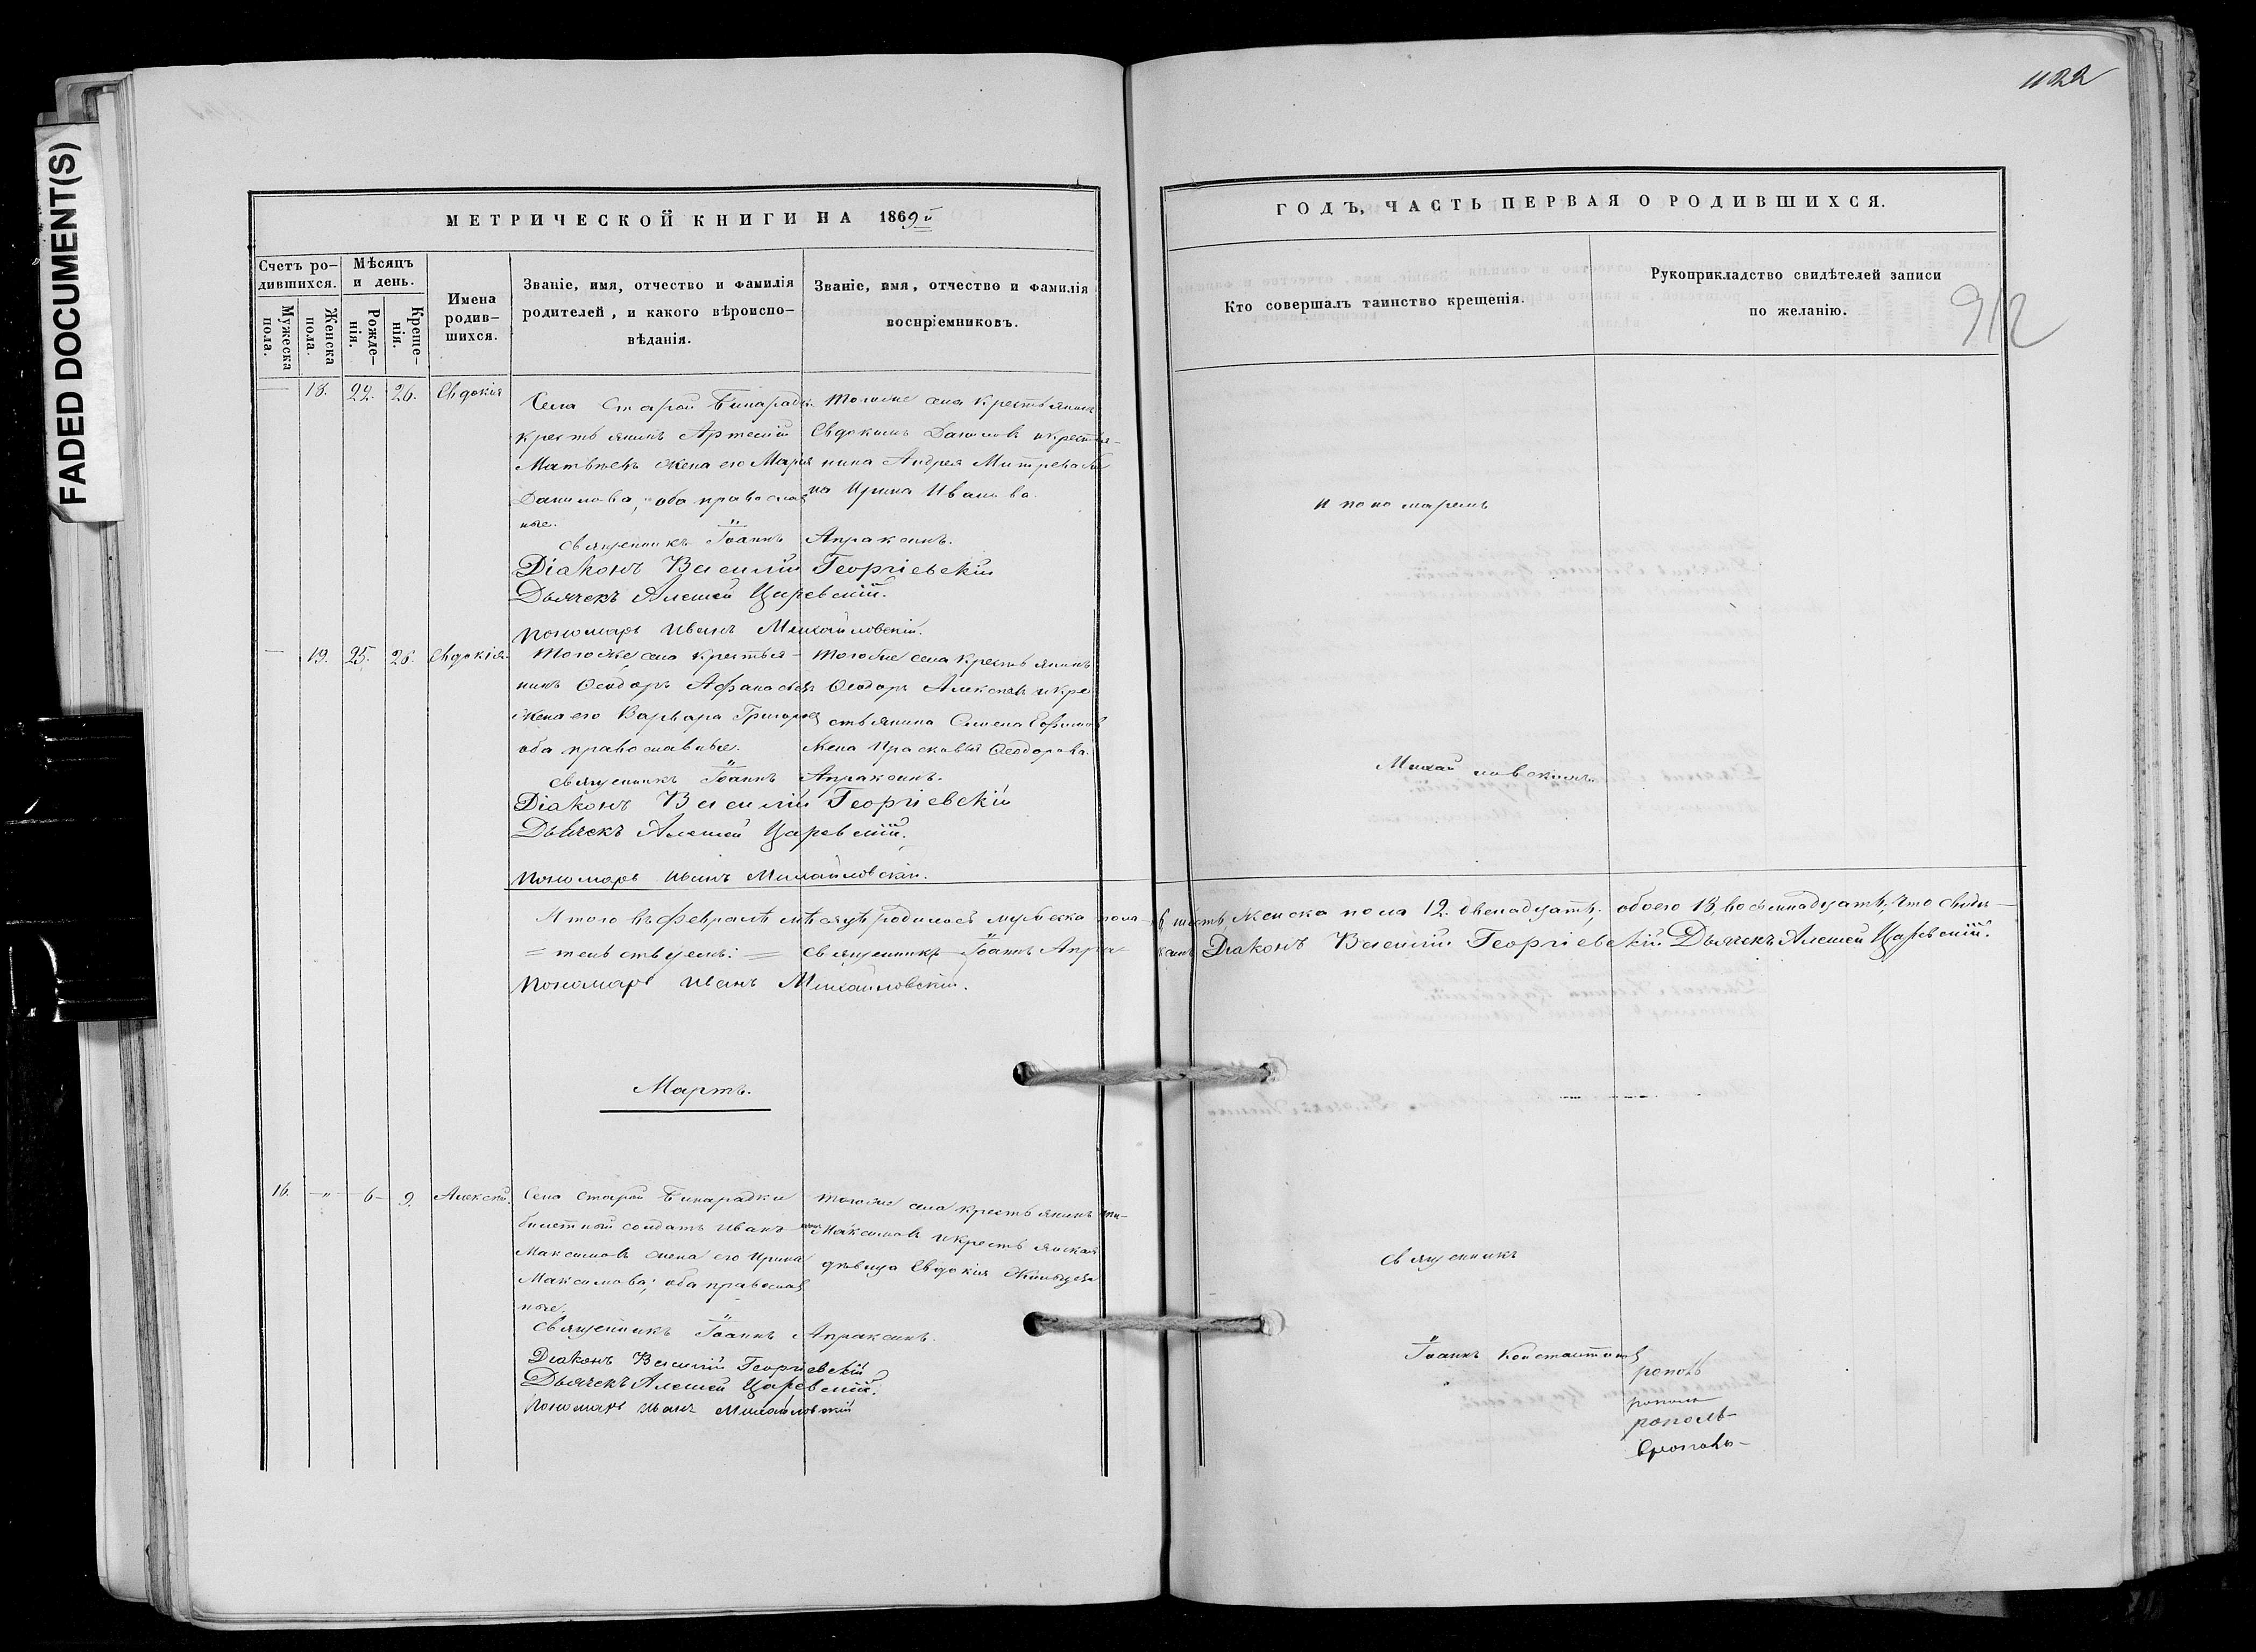 FADED DOCUMENT(S)
1122
МЕТРИЧЕСКОЙ КНИГИ НА 1869й
Счетъ ро-
дившихся.
Мужеска
пола.
Женска
пола.
Мѣсяцъ
и день.
Рожде-
нія.
Креще-
нія.
Имена
родив-
шихся.
Званіе, имя, отчество и фамилія
родителей, и какого вѣроиспо-
вѣданія.
Званіе, имя, отчество и фамилія
воспріемниковъ.
18. 22. 26. Евдокія
Села Старой Бинарадки
крестьянинъ Артемій
Матвѣевъ жена его Марія
Данилова; оба православ
ные.
Тогоже села крестьянинъ
Евдокимъ Даниловъ и крестья-
нина Андрея Митрева же
на Ирина Иванова.
Священникъ Іоаннъ Апраксинъ.
Діаконъ Василій Георгіевскій
Дьячекъ Алексѣй Царевскій.
Пономарь Иванъ Михайловскій.
19. 25. 26. Евдокія.
Тогоже села крестья-
нинъ Ѳеодоръ Афанасьевъ
жена его Варвара Григорьев
оба православные.
Тогоже села крестьянинъ
Ѳеодоръ Алексѣевъ и кре
стьянина Семена Ефимова
жена Прасковья Ѳеодорова.
Священникъ Іоаннъ Апраксинъ.
Діаконъ Василій Георгіевскій
Дьячекъ Алексѣй Царевскій.
Пономарь Иванъ Михайловскій.
Итого въ Февралѣ мѣсяцѣ родилось мужеска пола 6 шесть, женска пола 12. двенадцать; обоего 18, восемнадцать; что свидѣ-
=тельствуемъ:= Священникъ Іоаннъ Апраксинъ Діаконъ Василій Георгіевскій Дьячекъ Алексѣй Царевскій.
Пономарь Иванъ Михайловскій.
Мартъ.
16. -"- 6 9. Алексѣй.
Села Старой Бинарадки
билетный солдатъ Иванъ
Максимовъ жена его Ирина
Максимова; оба православ
ные.
Тогоже села крестьянинъ
Максимовъ и крестьянская
дѣвица Евдокія
Священникъ Іоаннъ Апраксинъ.
Діаконъ Василій Георгіевскій
Дьячекъ Алексѣй Царевскій.
Пономарь Иванъ Михайловскій
ГОДЪ, ЧАСТЬ ПЕРВАЯ О РОДИВШИХСЯ.
Кто совершалъ таинство крещенія.
Рукоприкладство свидѣтелей записи
по желанію.
912
и пономаремъ
Михайловскимъ.
Священникъ
Іоаннъ Константинов